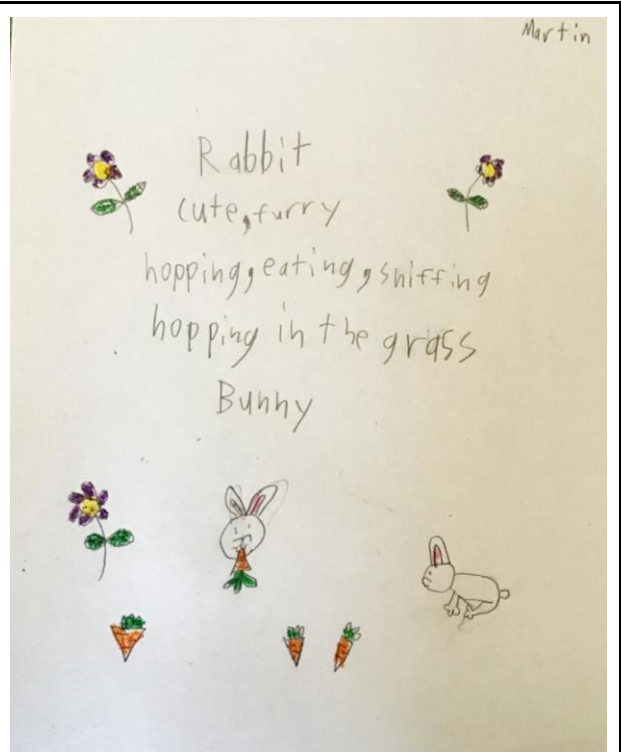 Martin
Rabbit
cute, furry
hopping, eating, sniffing
hopping in the grass
Bunny